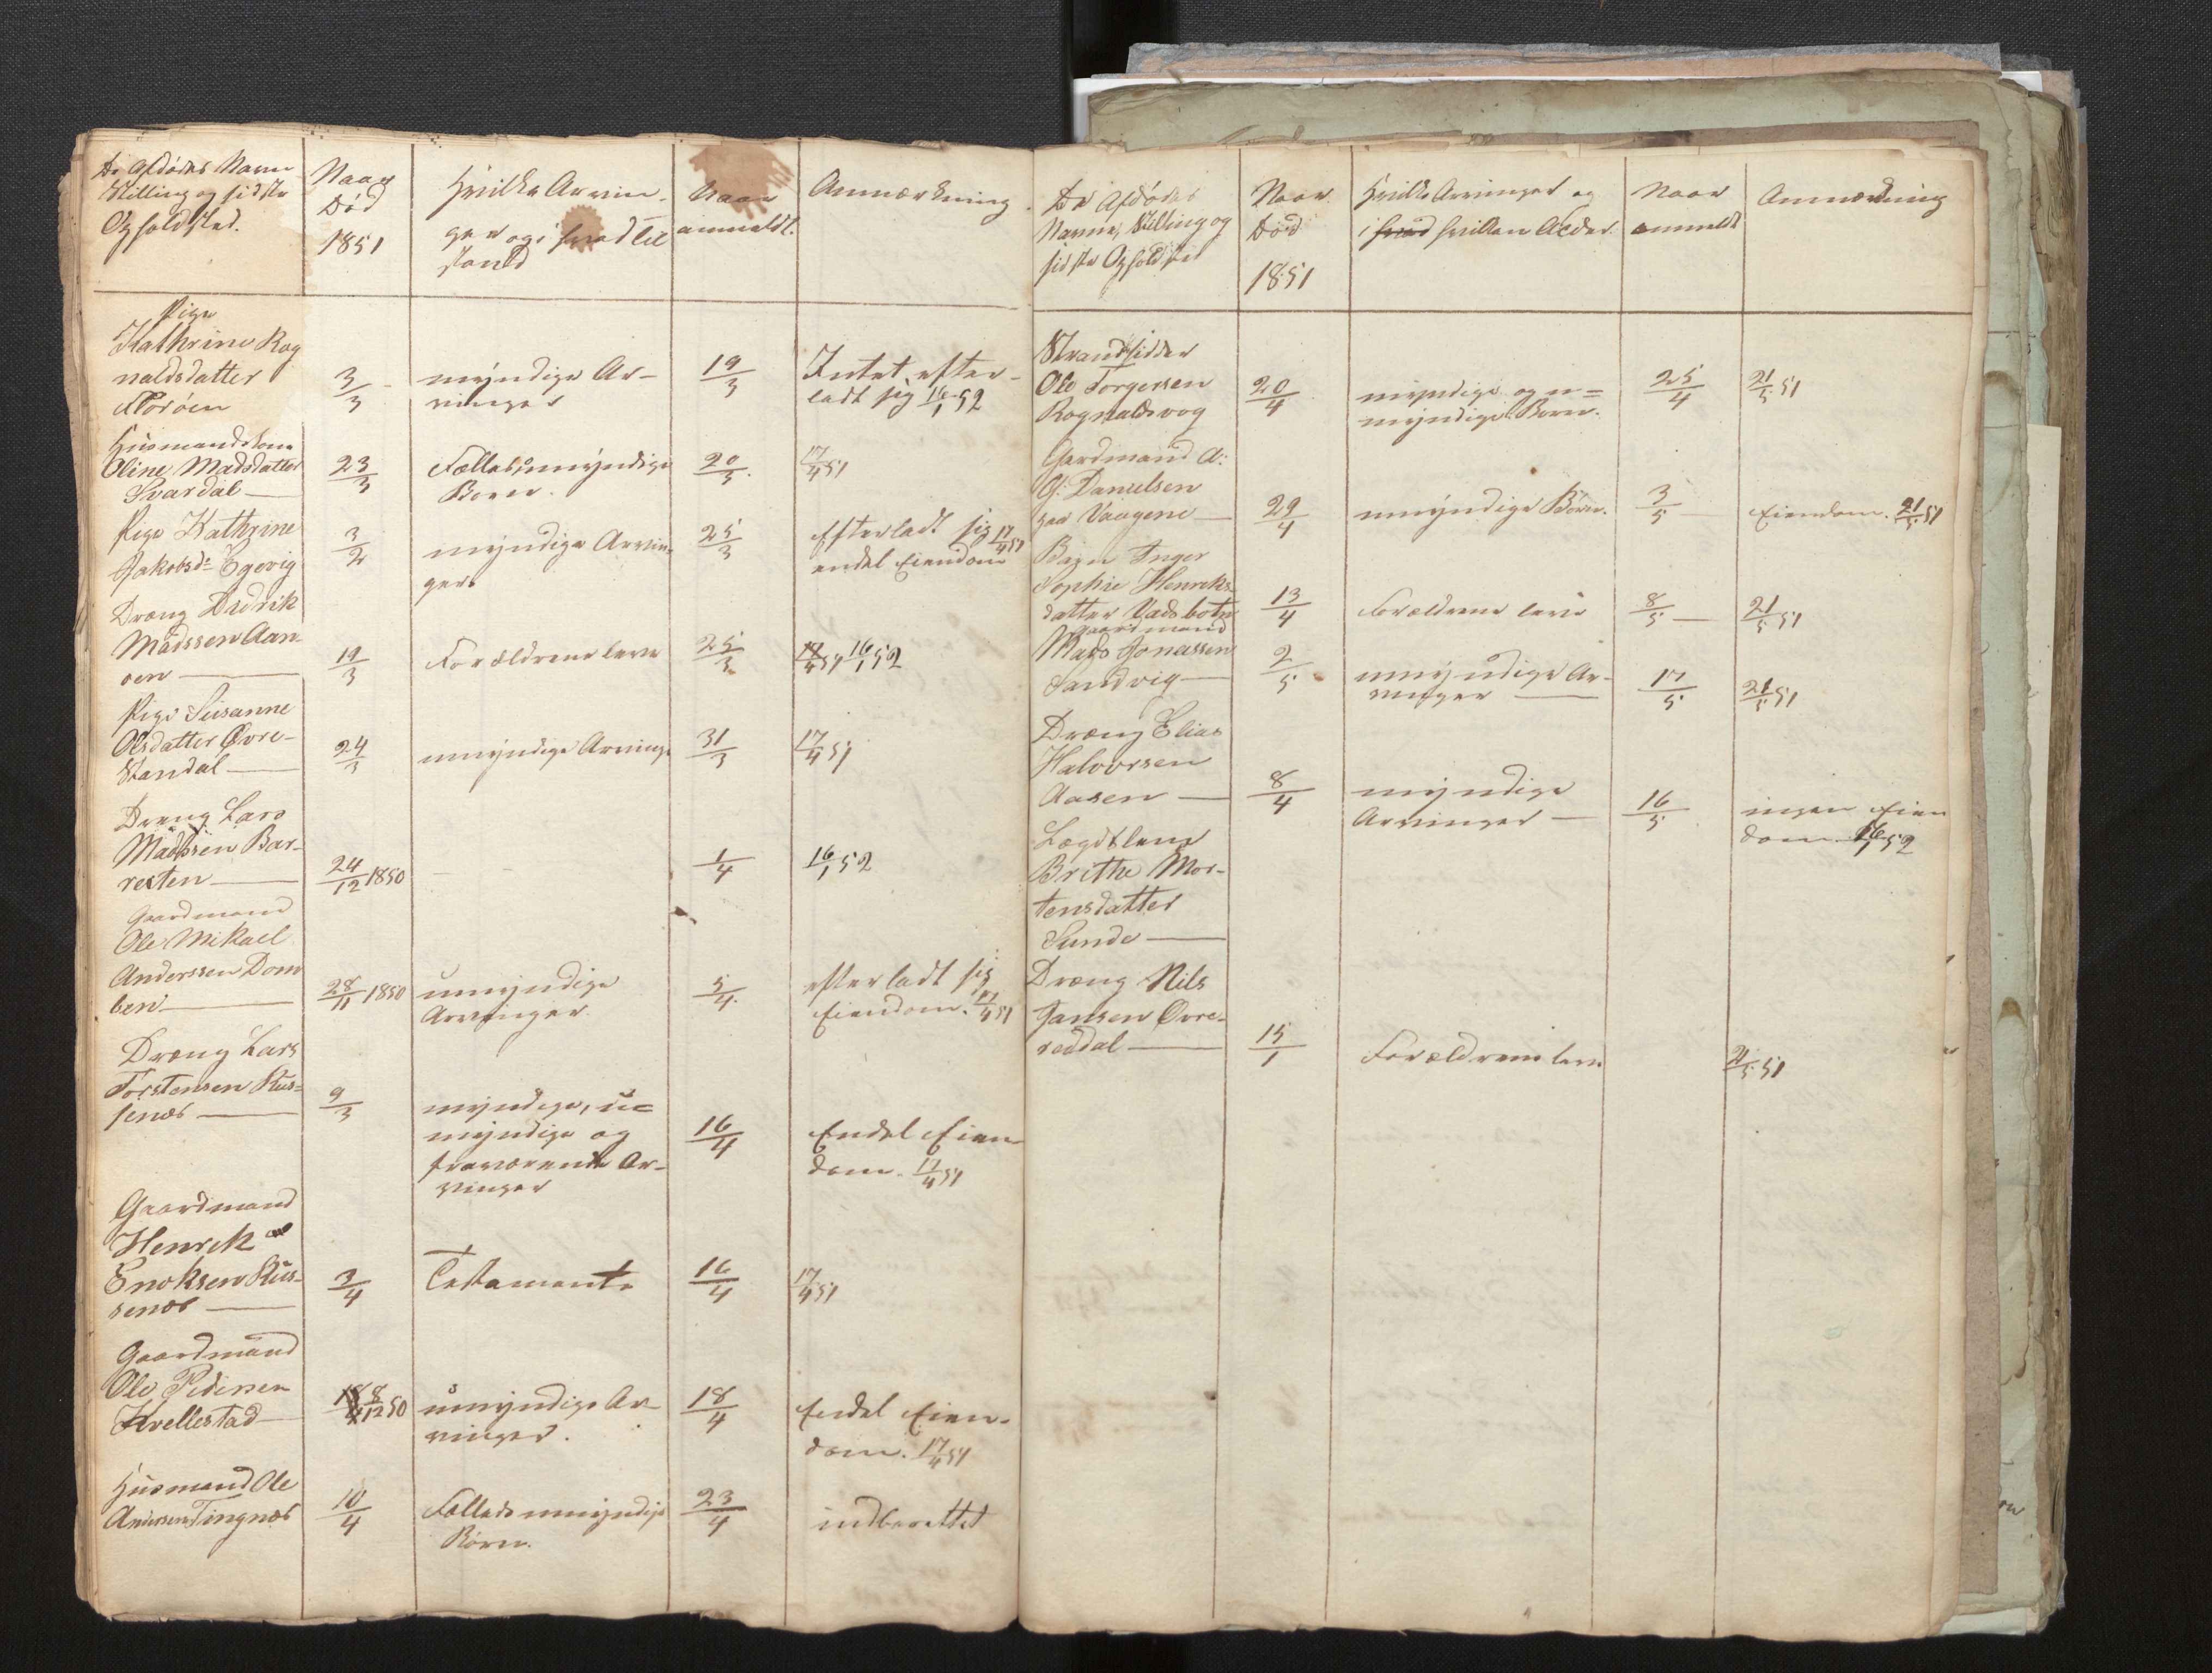 De Afdødes Navn
Stilling og sidste
Opholdsted.
Naar
Død
1851
Hvilke Arvin-
ger og i hvad til
stand
Naar
anmeldt.
Anmærkning
Pige
Kathrine Rag
naldsdatter
Florøen
3/3
myndige Ar-
vinger
19/3
Intet efter-
ladt sig 16/1 52
Husmandskone
Oline Madsdatter
Svardal
23/3
Fælleds umyndige
Børn.
20/3.
17/4 51
Pige Kathrine
Jakobsd: Egevig
3/2
myndige Arvin-
gere
25/3
Efterladt sig 17/4 51
endel Eiendom
Dræng Didrik
Madssen Aan-
øen
19/3
Forældrene leve
25/3
17/4 51 16/1 52
Pige Susanne
Olsdatter Øvre-
Standal
24/3
umyndige Arvinge
31/3
17/4 51
Dreng Lars
Madssen Bar-
resten
24/12 1850
1/4
16/1 52
Gaardmand
Ole Mikael
Anderssen Dom
ben
28/11 1850
umyndige
Arvinger.
5/4.
efterladt sig
Eiendom. 17/4 51
Dræng Lars
Torstensen Hus-
senæs
9/3
myndige, u=
myndige og
fraværende Ar-
vinger
16/4
Endel Eien
dom. 17/4 51
Gaardmand
Henrik
Enoksen Hus-
senæs
3/4
Testamente
16/4
17/4 51
Gaardmand
Ole Pedersen
Hvellestad
8/12 50
umyndige Ar-
vinger.
18/4
Endel Eien-
dom. 17/4 51
Husmand Ole
Andersen Tingnæs
10/4
Fælleds umyndige
Børn.
23/4
indberettet
De Afdødes
Navne, Stilling og
sidste Opholdsted
Naar
Død
1851
Hvilke Arvinger og
i hvad hvilken Alder.
Naar
anmeldt
Anmærkning
Strandsidder
Ole Torgersen
Rognaldsvog
20/4
myndige og u=
myndige Børn.
25/4
21/5 51
Gardmand A:
G: Danielsen
paa Vaagene
29/4
umyndige Børn.
3/5
Eiendom. 21/5 51
Barn Inger
Sophie Henriks
datter Vadsbotn
13/4
Forældrene leve
8/5
21/5 51
gaardmand
Mads Jonassen
Sandvig
2/5
umyndige Ar-
vinger
17/5
21/5 51
Dræng Elias
Halvorsen
Aasen
8/4
myndige
Arvinger
16/5
ingen Eien
dom. 16/1 52
Lægdslem
Brithe Mor-
tensdatter
Sunde
Dræng Nils
Jansen Øvre-
reddal
15/1
Forældrene leve
21/5 51